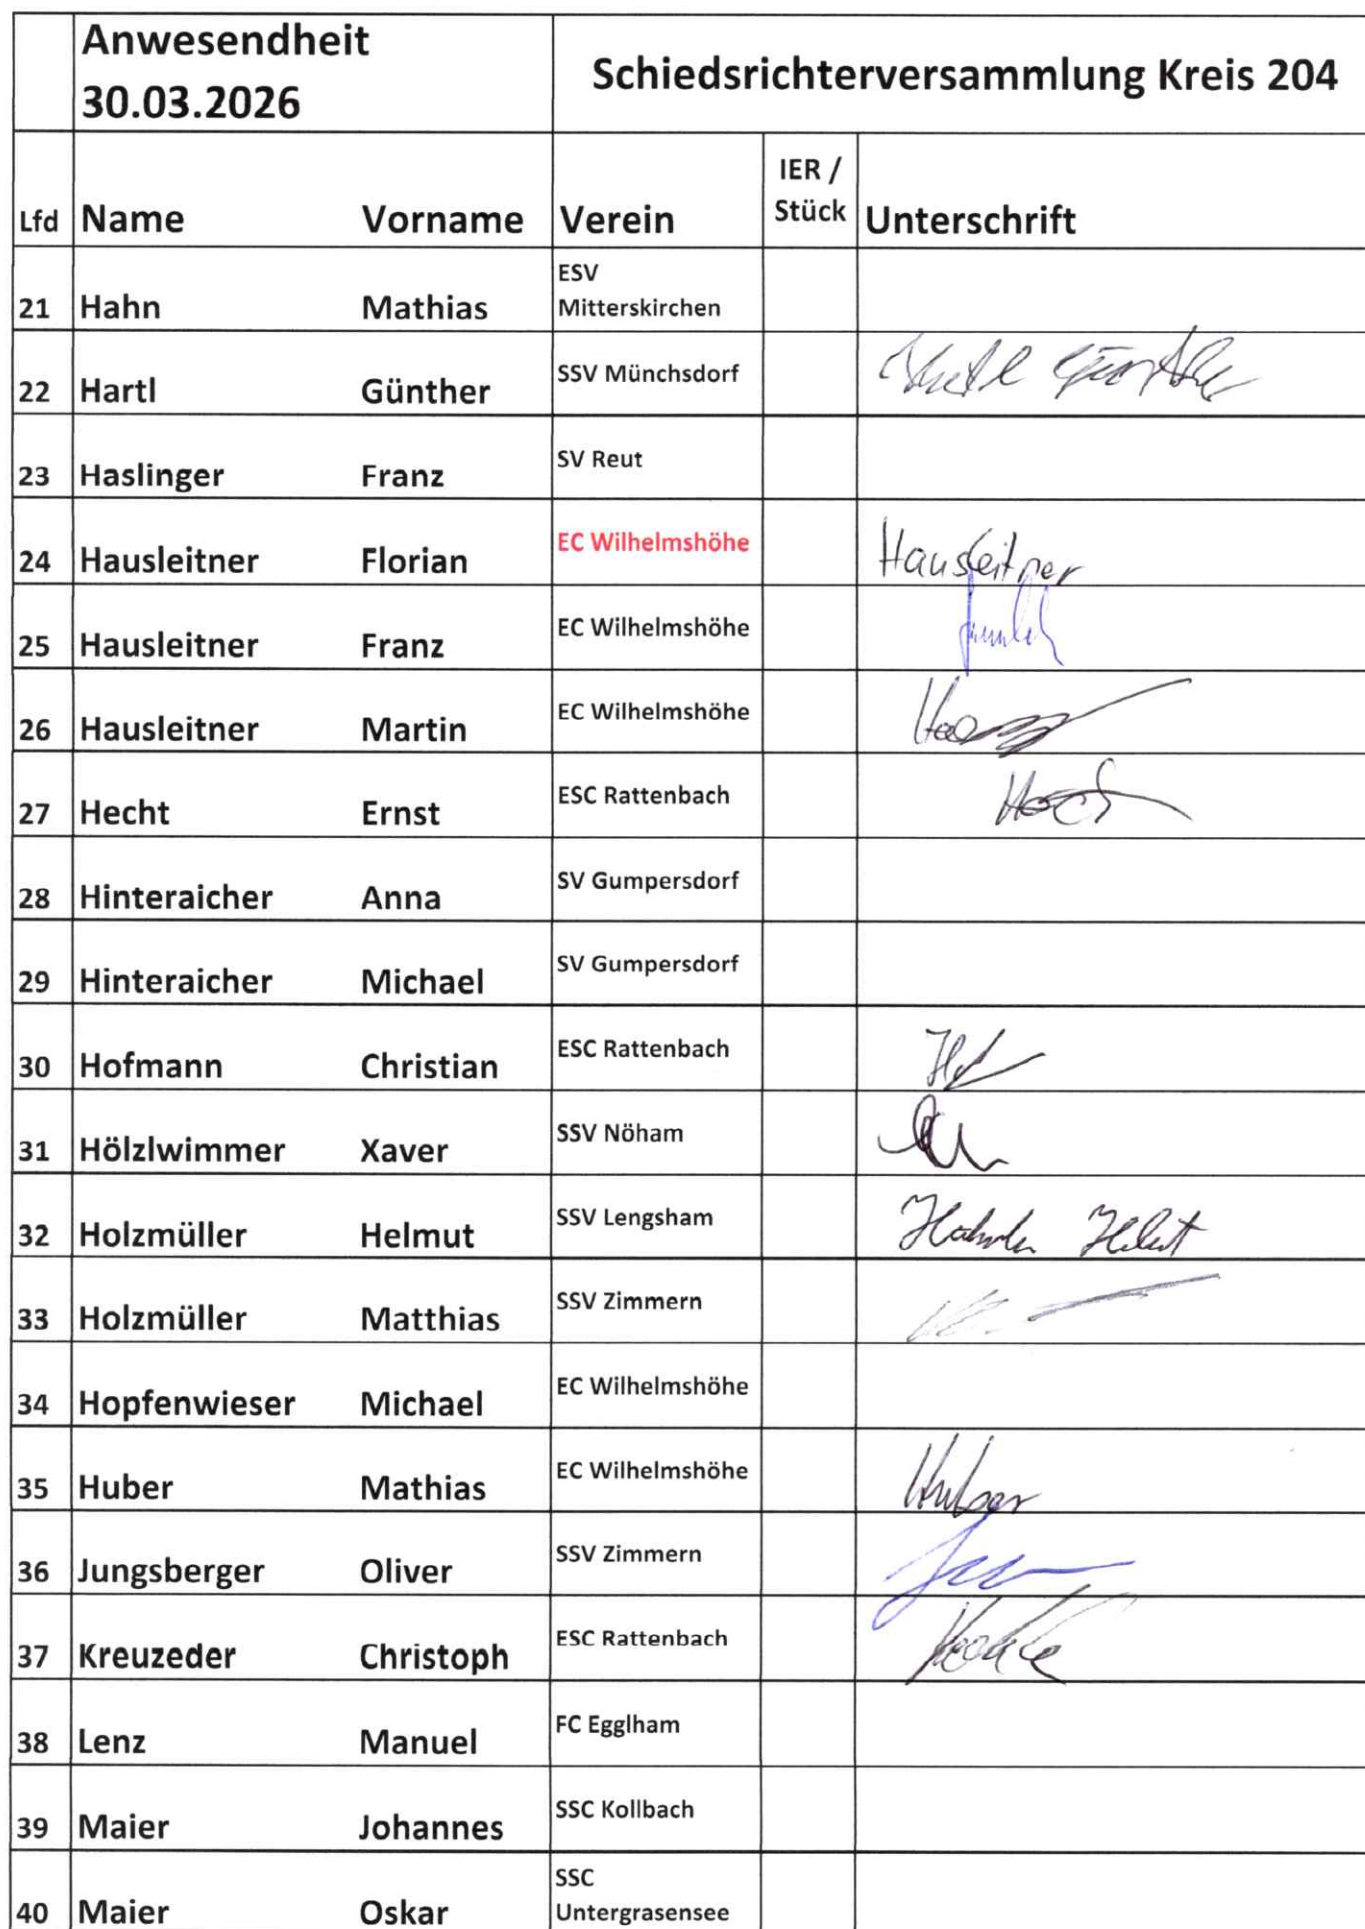 Anwesendheit
30.03.2026
Schiedsrichterversammlung Kreis 204
Lfd Name Vorname Verein IER / Stück Unterschrift
21 Hahn Mathias ESV Mitterskirchen
22 Hartl Günther SSV Münchsdorf Hartl Günther
23 Haslinger Franz SV Reut
24 Hausleitner Florian EC Wilhelmshöhe Hausleitner
25 Hausleitner Franz EC Wilhelmshöhe
26 Hausleitner Martin EC Wilhelmshöhe
27 Hecht Ernst ESC Rattenbach
28 Hinteraicher Anna SV Gumpersdorf
29 Hinteraicher Michael SV Gumpersdorf
30 Hofmann Christian ESC Rattenbach
31 Hölzlwimmer Xaver SSV Nöham
32 Holzmüller Helmut SSV Lengsham
33 Holzmüller Matthias SSV Zimmern
34 Hopfenwieser Michael EC Wilhelmshöhe
35 Huber Mathias EC Wilhelmshöhe Huber
36 Jungsberger Oliver SSV Zimmern
37 Kreuzeder Christoph ESC Rattenbach
38 Lenz Manuel FC Egglham
39 Maier Johannes SSC Kollbach
40 Maier Oskar SSC Untergrasensee